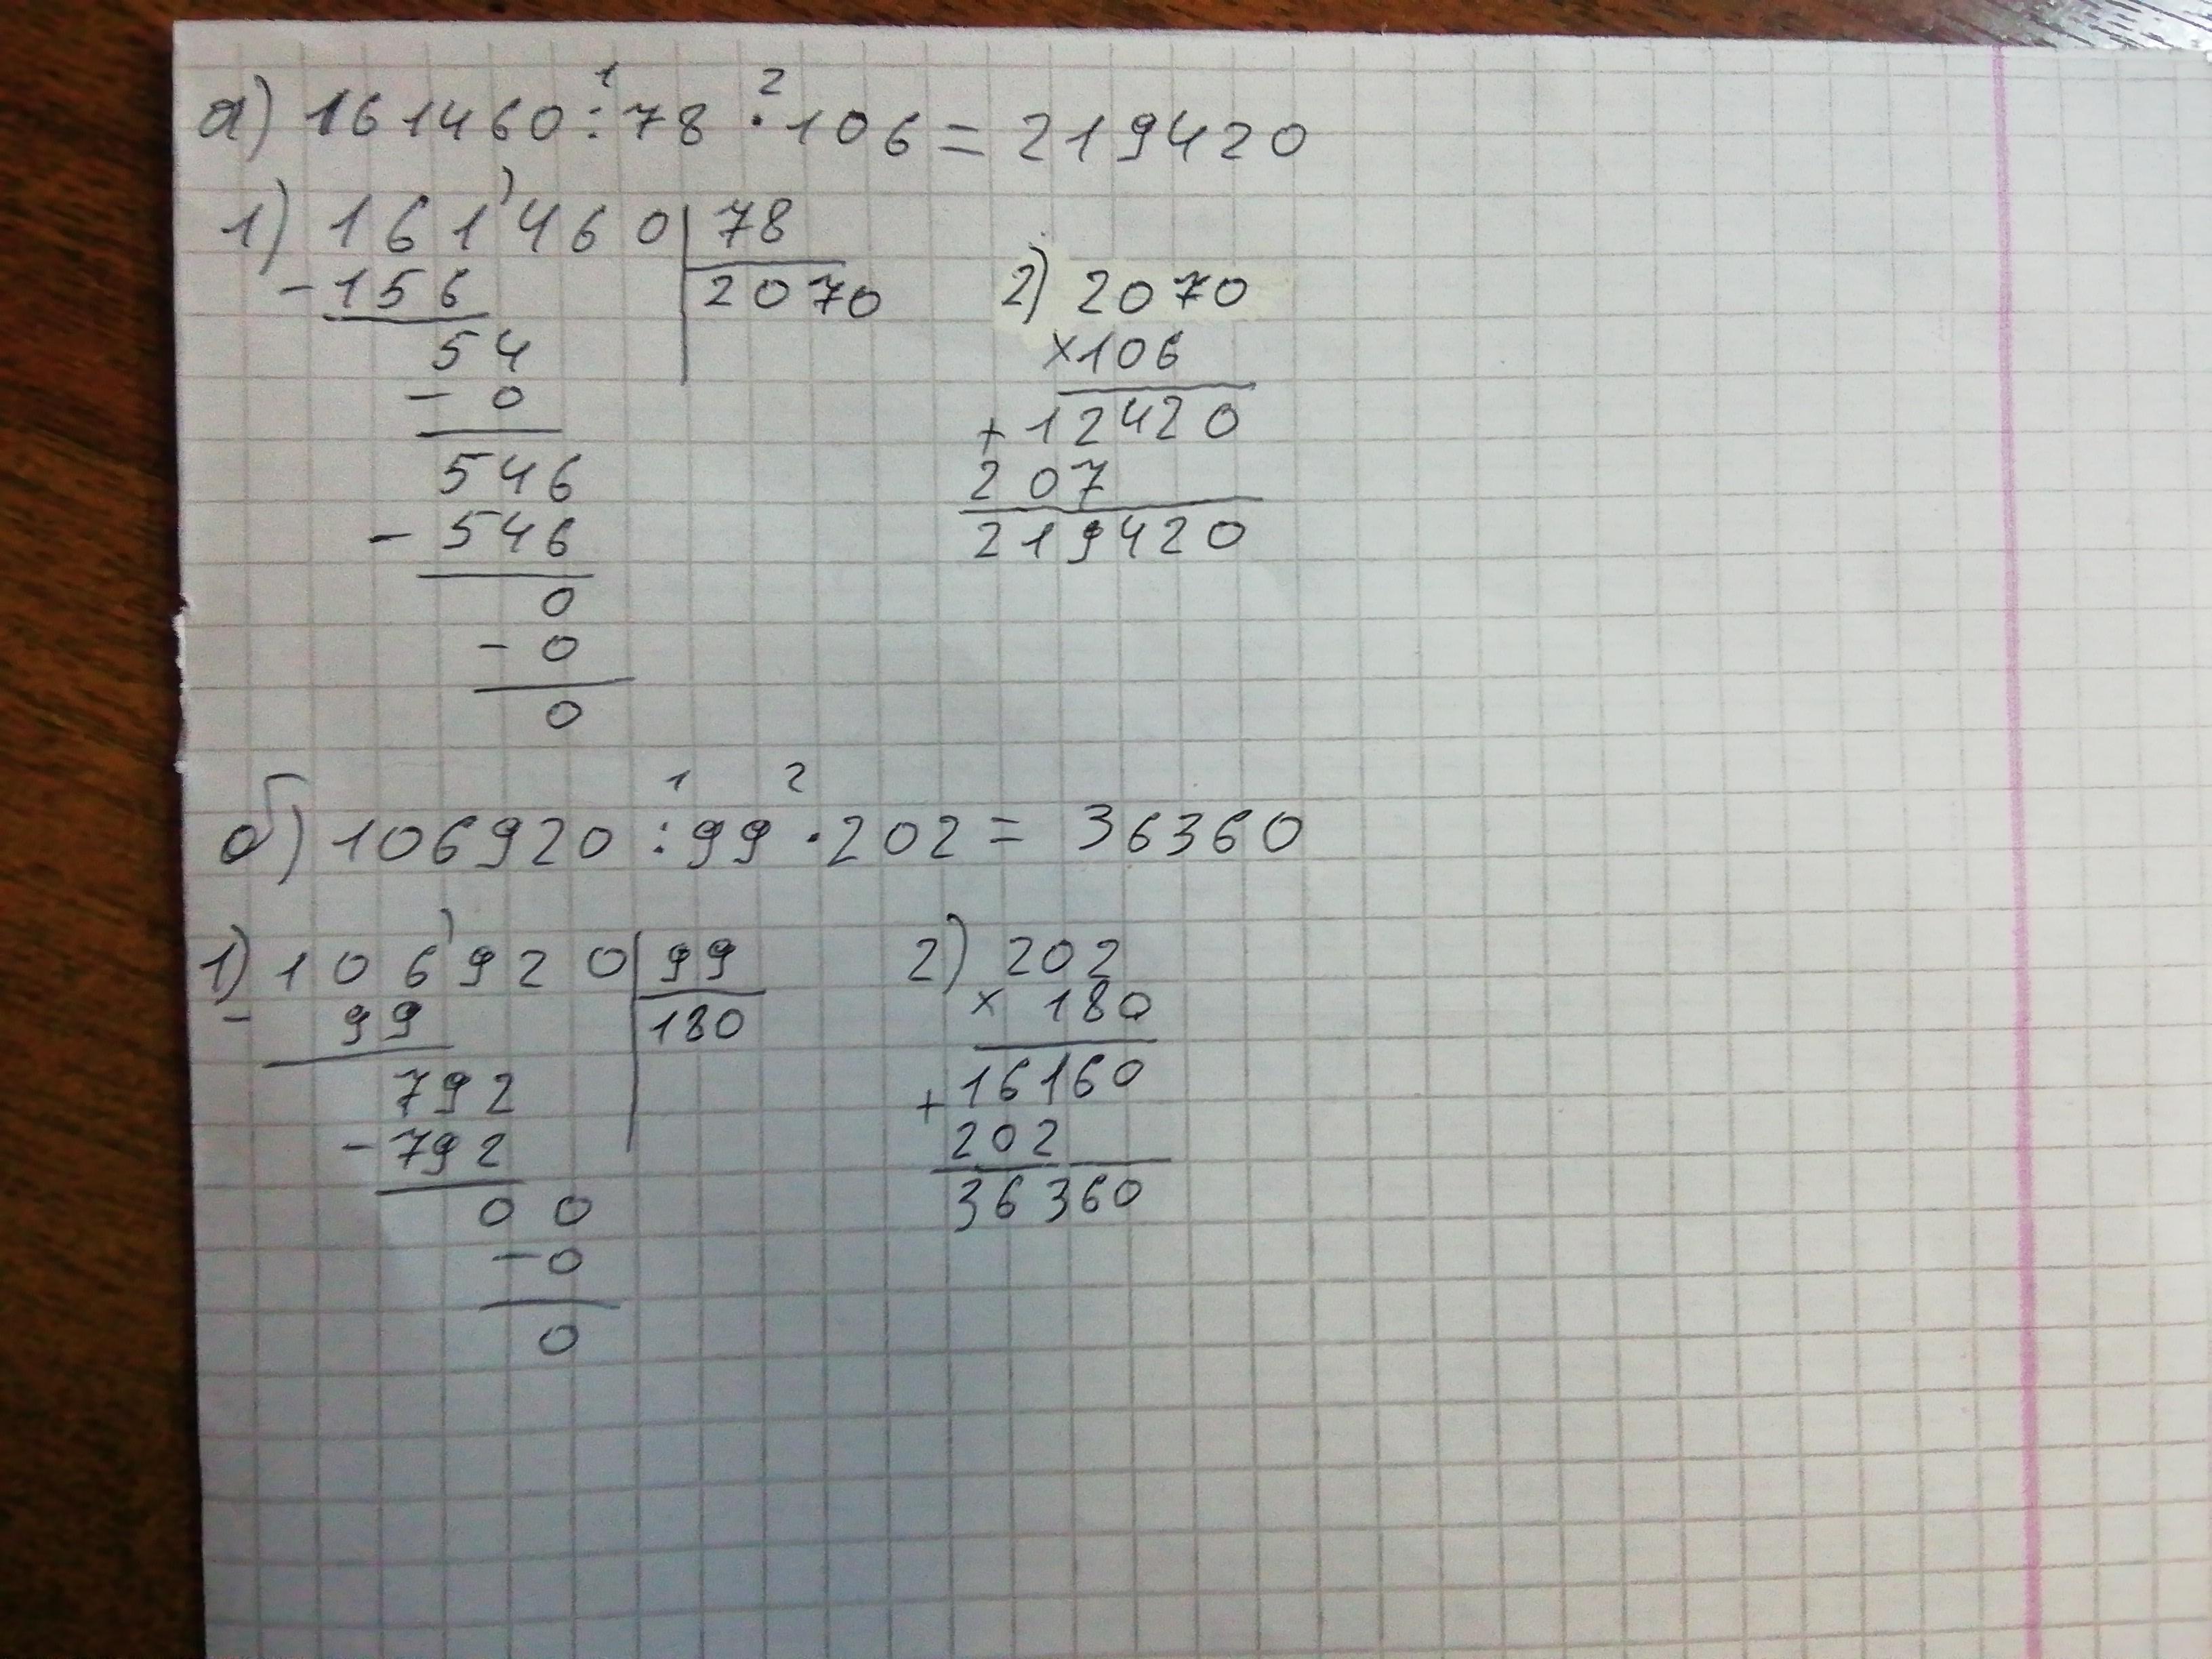 1 2
а) 161460÷78·106=219420
1) 161'460 78
-156 2070
54
-0
546
-546
0
-0
0
2) 2070
×106
+12420
207
219420
1 2
б) 106920:99·202=36360
1) 106'920 99
-99 180
792
-792
00
-0
0
2) 202
×180
+16160
202
36360